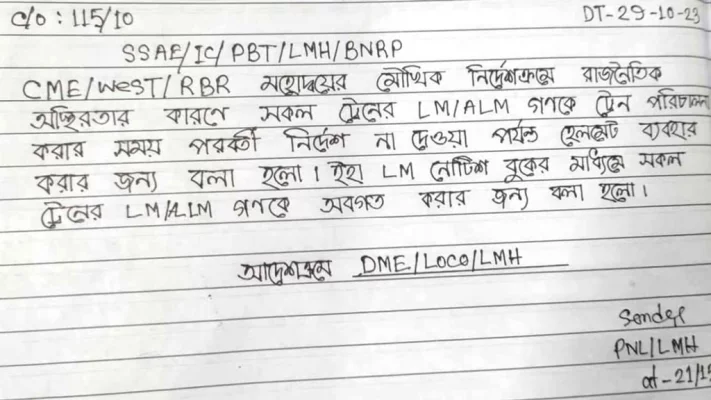 c/o : 115/10
DT-29-10-23
SSAE/IC/PBT/LMH/BNRP
CME/WEST/RBR মহোদয়ের মৌখিক নির্দেশক্রমে রাজনৈতিক
অস্থিরতার কারণে সকল ট্রেনের LM/ALM গণকে ট্রেন পরিচালনা
করার সময় পরবর্তী নির্দেশ না দেওয়া পর্যন্ত হেলমেট ব্যবহার
করার জন্য বলা হলো। ইহা LM নোটিশ বুকের মাধ্যমে সকল
ট্রেনের LM/ALM গণকে অবগত করার জন্য বলা হলো।
আদেশক্রমে DME/LOCO/LMH
Sender
PNL/LMH
at-21/15